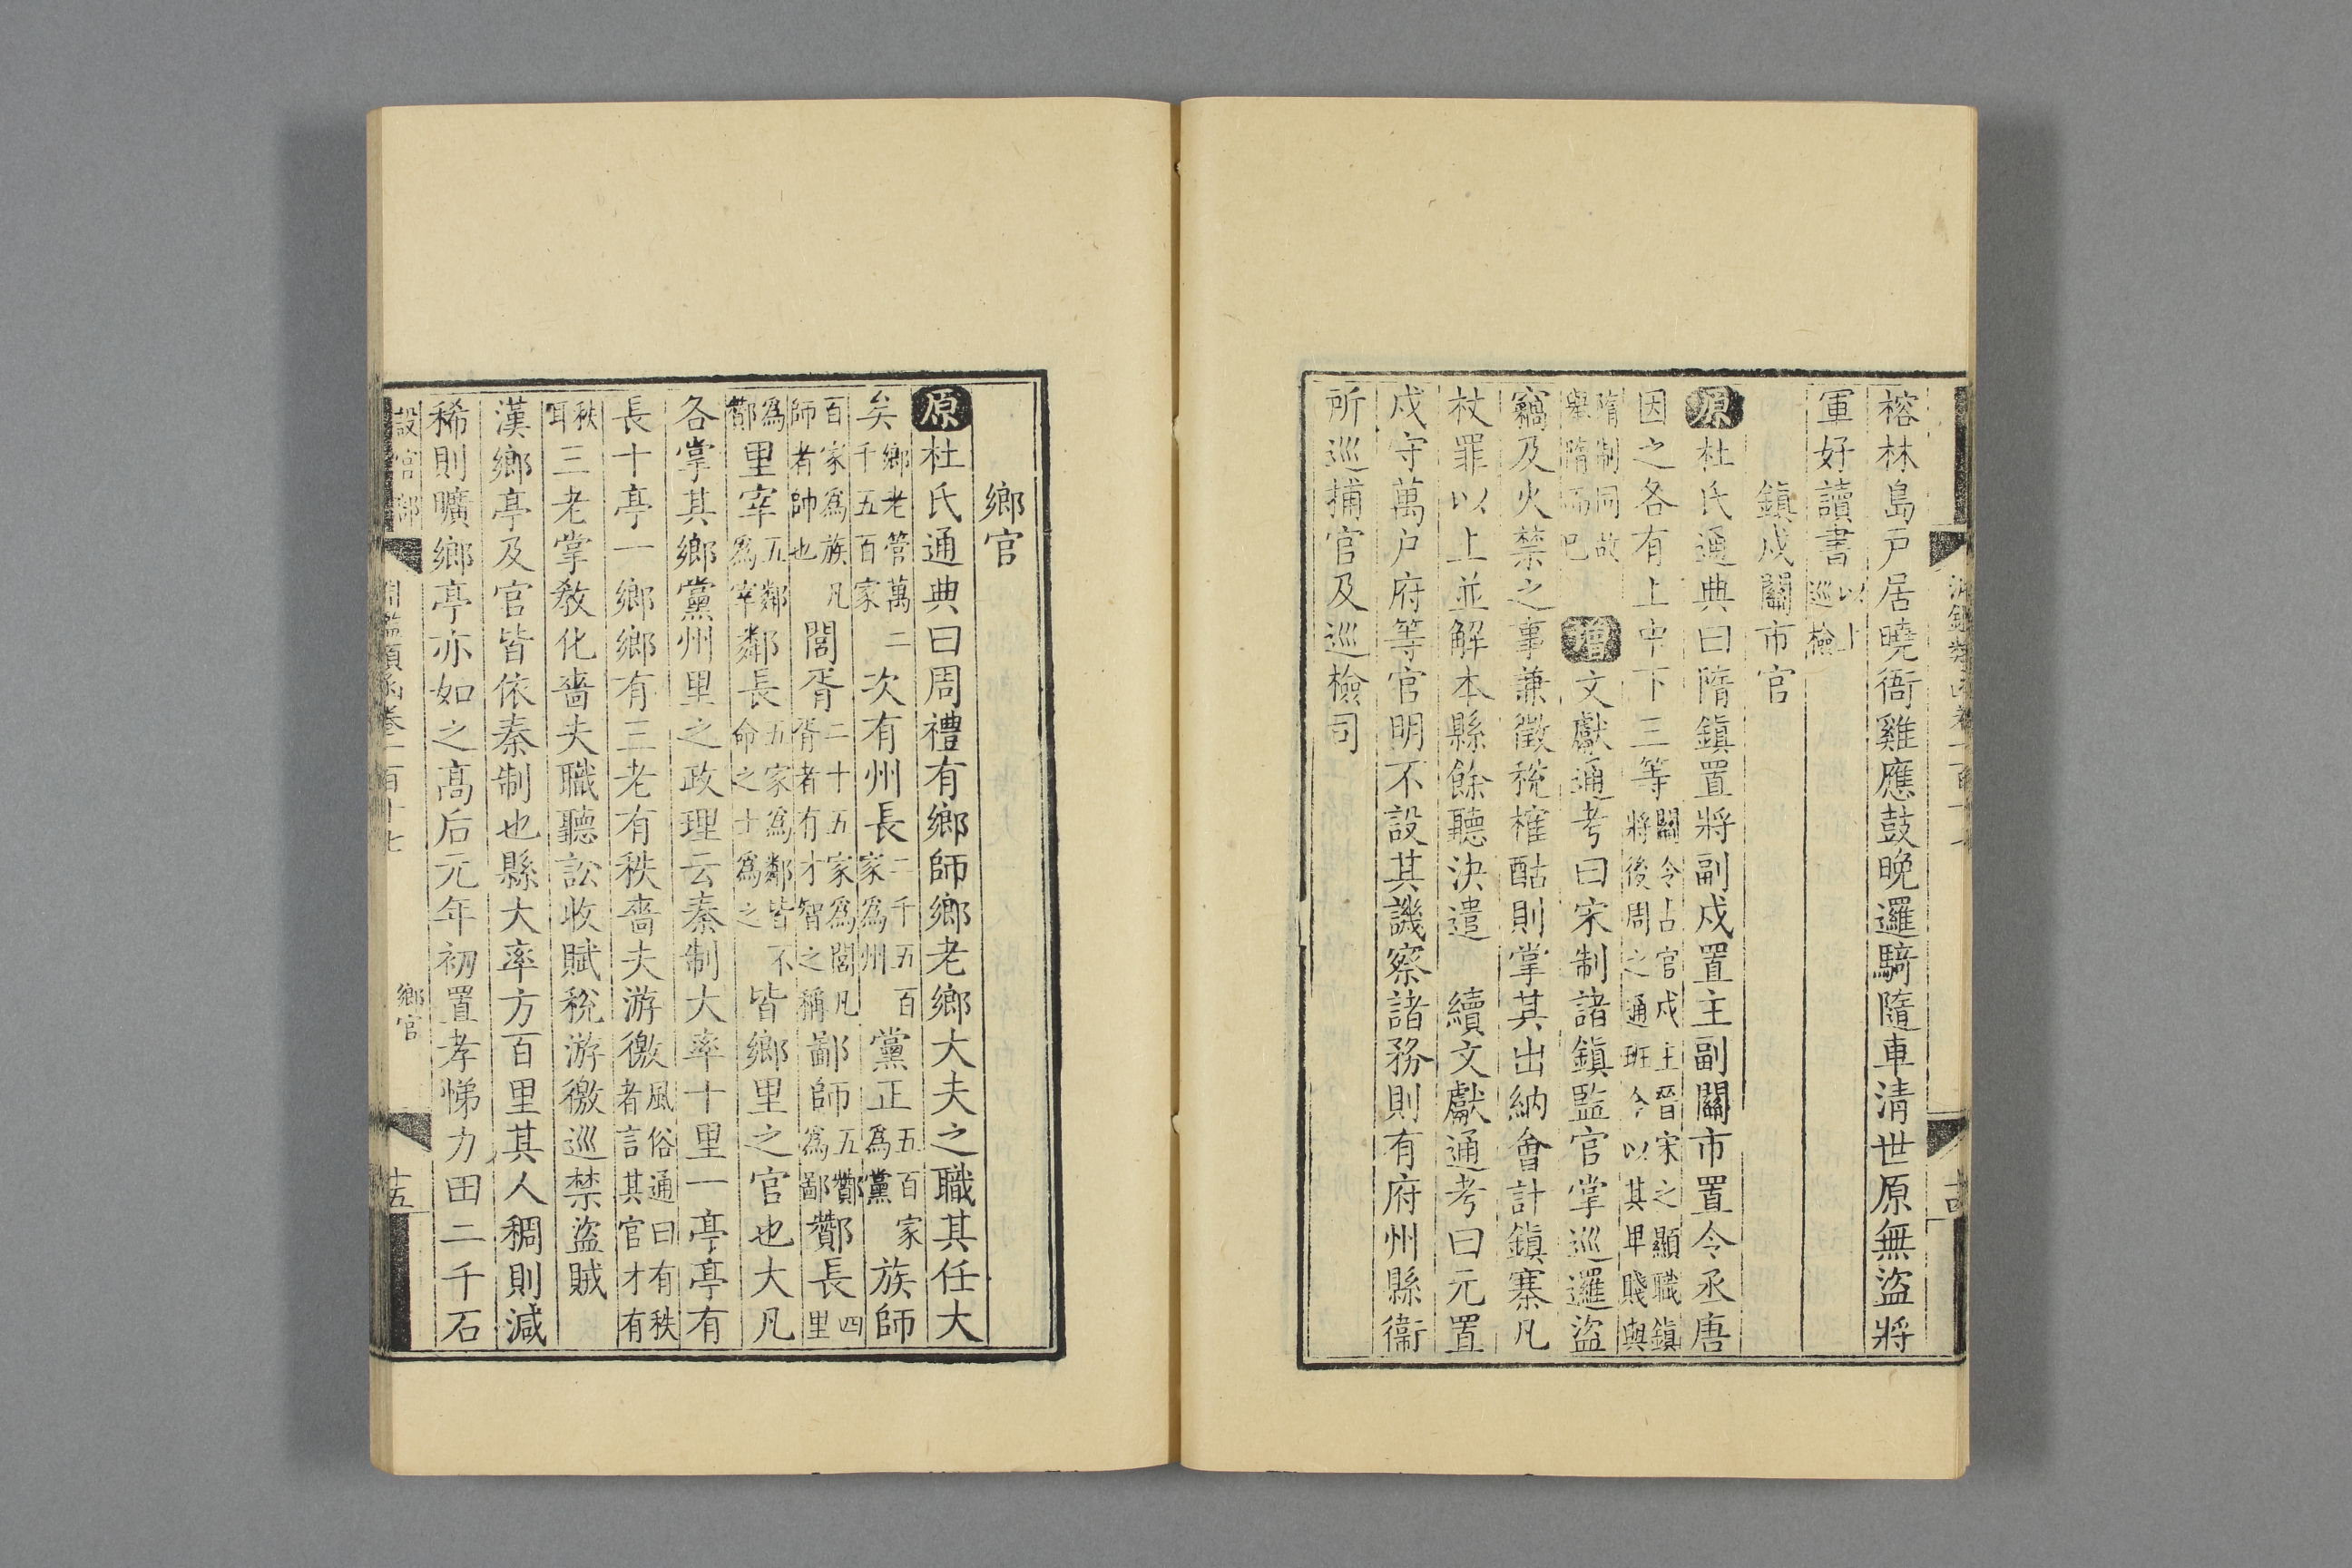 榕林島戸居曉衙雞應鼓晩邏騎隨車清世原無盜將
軍好讀書以上巡檢
鎮戍關市官
原杜氏通典曰隋鎮置將副戍置主副關市置令丞唐
因之各有上中下三等關令占官戍主晉宋之顯職鎮將後周之通班今以其卑賤與
隋制同故舉隋而已增文獻通考曰宋制諸鎮監官掌巡邏盜
竊及火禁之事兼徵稅榷酤則掌其出納會計鎮寨凡
杖罪以上並解本縣餘聽決遣 續文獻通考曰元置
戍守萬户府等官明不設其譏察諸務則有府州縣衞
所巡捕官及巡檢司
十四
鄉官
原杜氏通典曰周禮有鄉師鄉老鄉大夫之職其任大
矣鄉老管萬二千五百家次有州長二千五百家為州黨正五百家為黨族師
百家為族凡師者帥也閭胥二十五家為閭凡胥者有才智之稱鄙師五酇為鄙酇長四里
為酇里宰五鄰為宰鄰長五家為鄰皆不命之士為之皆鄉里之官也大凡
各掌其鄉黨州里之政理云秦制大率十里一亭亭有
長十亭一鄉鄉有三老有秩嗇夫游徼風俗通曰有秩者言其官才有
秩耳三老掌敎化嗇夫職聽訟收賦稅游徼巡禁盜賊
漢鄉亭及官皆依秦制也縣大率方百里其人稠則減
稀則曠鄉亭亦如之高后元年初置孝悌力田二千石
設官部
淵鑑類函卷一百十七
鄉官
十五